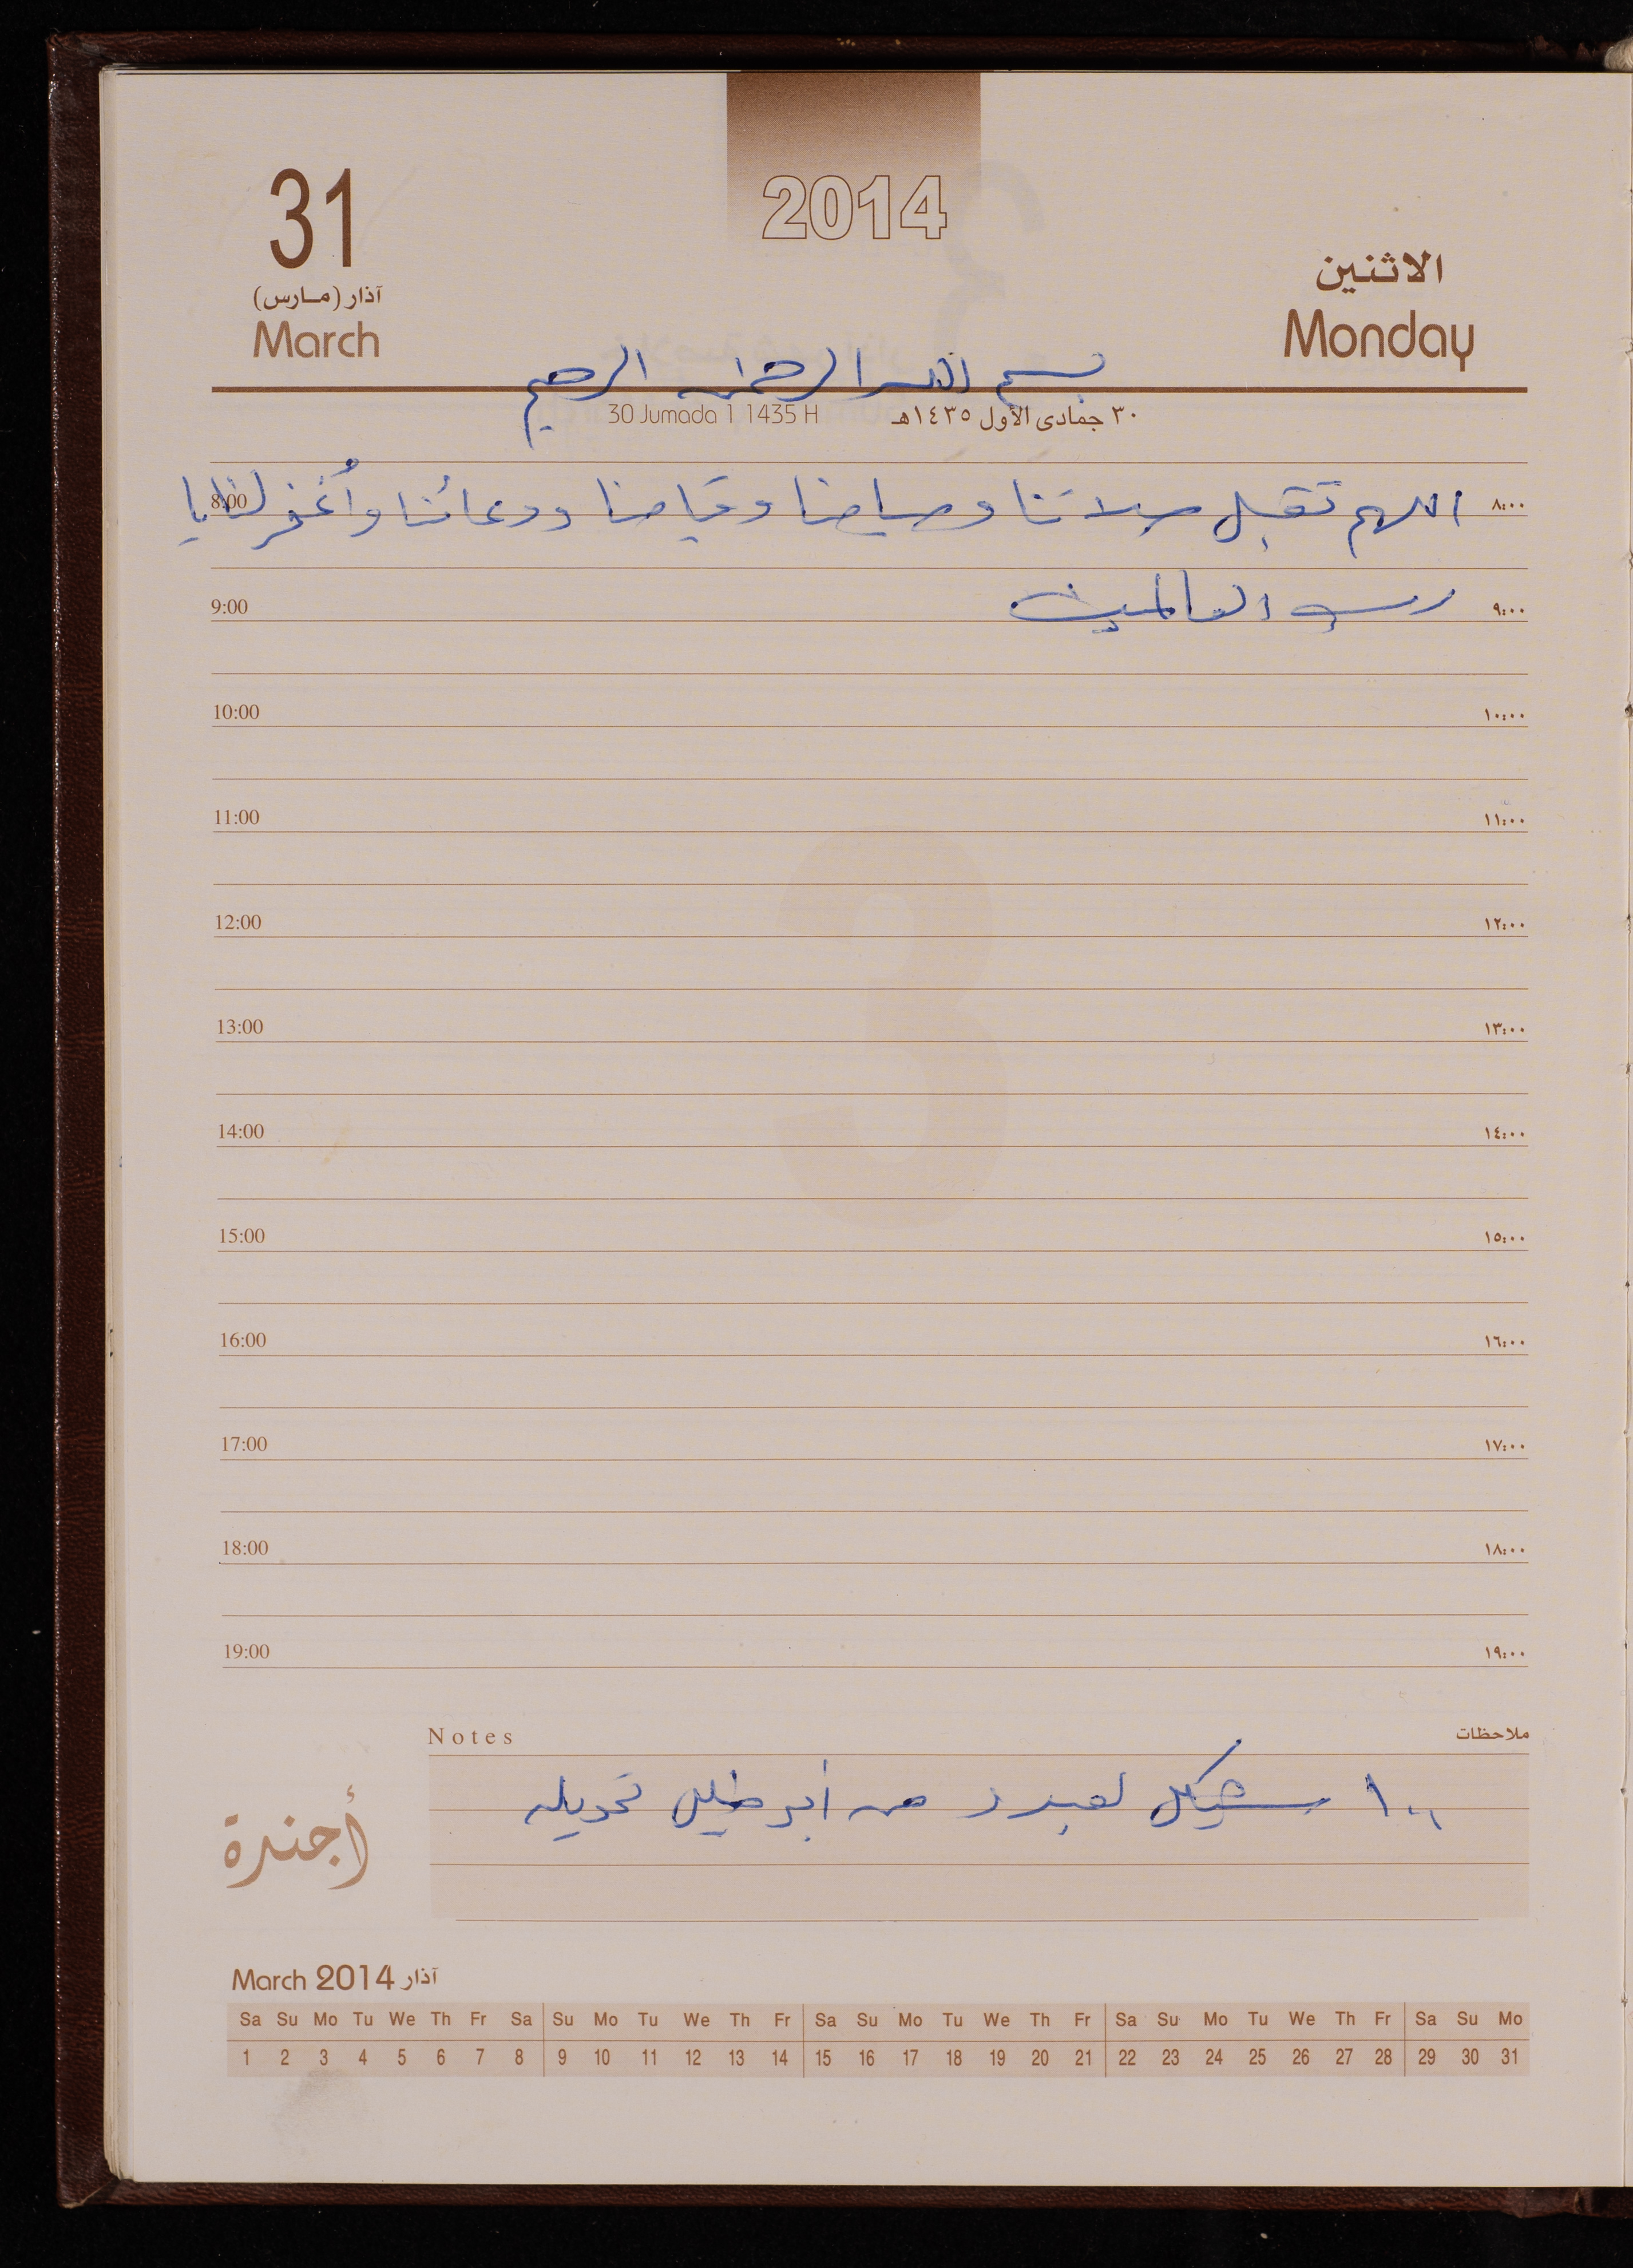 2014
31
آذار (مارس)
March
الاثنين
Monday
بسم الله الرحمن الرحيم
30 Jumada 1 1435 H
٣٠ جمادى الأول ١٤٣٥هـ
8:00 ٨:٠٠
اللهم تقبل صلاتنا وصيامنا وقيامنا ودعائنا وأغفر لنا يا
9:00 ٩:٠٠
رب العالمين
10:00 ١٠:٠٠
11:00 ١١:٠٠
12:00 ١٢:٠٠
13:00 ١٣:٠٠
14:00 ١٤:٠٠
15:00 ١٥:٠٠
16:00 ١٦:٠٠
17:00 ١٧:٠٠
18:00 ١٨:٠٠
19:00 ١٩:٠٠
Notes ملاحظات
١٠٠ شيكل من أبو خليل تحويله
أجندة
March 2014 آذار
Sa Su Mo Tu We Th Fr Sa Su Mo Tu We Th Fr Sa Su Mo Tu We Th Fr Sa Su Mo Tu We Th Fr Sa Su Mo
1 2 3 4 5 6 7 8 9 10 11 12 13 14 15 16 17 18 19 20 21 22 23 24 25 26 27 28 29 30 31